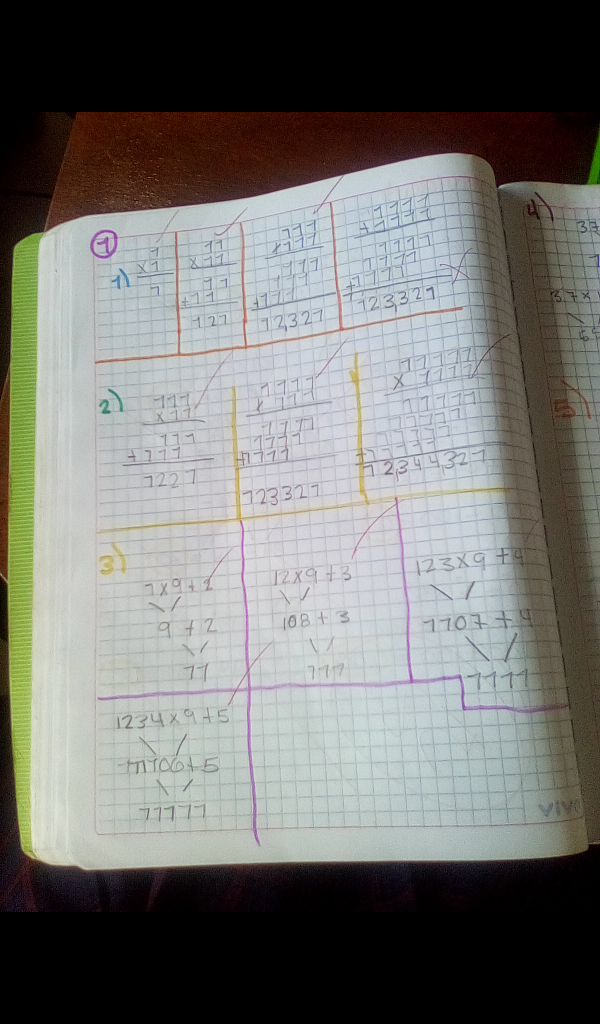 1
1)
1
x1
1
11
x11
11
+11
121
111
x111
111
111
+111
12,321
1111
x1111
1111
1111
+1111
123,321
2)
111
x11
111
+111
1221
1111
x111
1111
1111
+1111
123321
11111
x1111
11111
11111
11111
+11111
12,344,321
3)
1x9+2
9+2
11
12x9+3
108+3
111
123x9+4
1107+4
1111
1234x9+5
11106+5
11111
4)
37
37x
5)
vivo